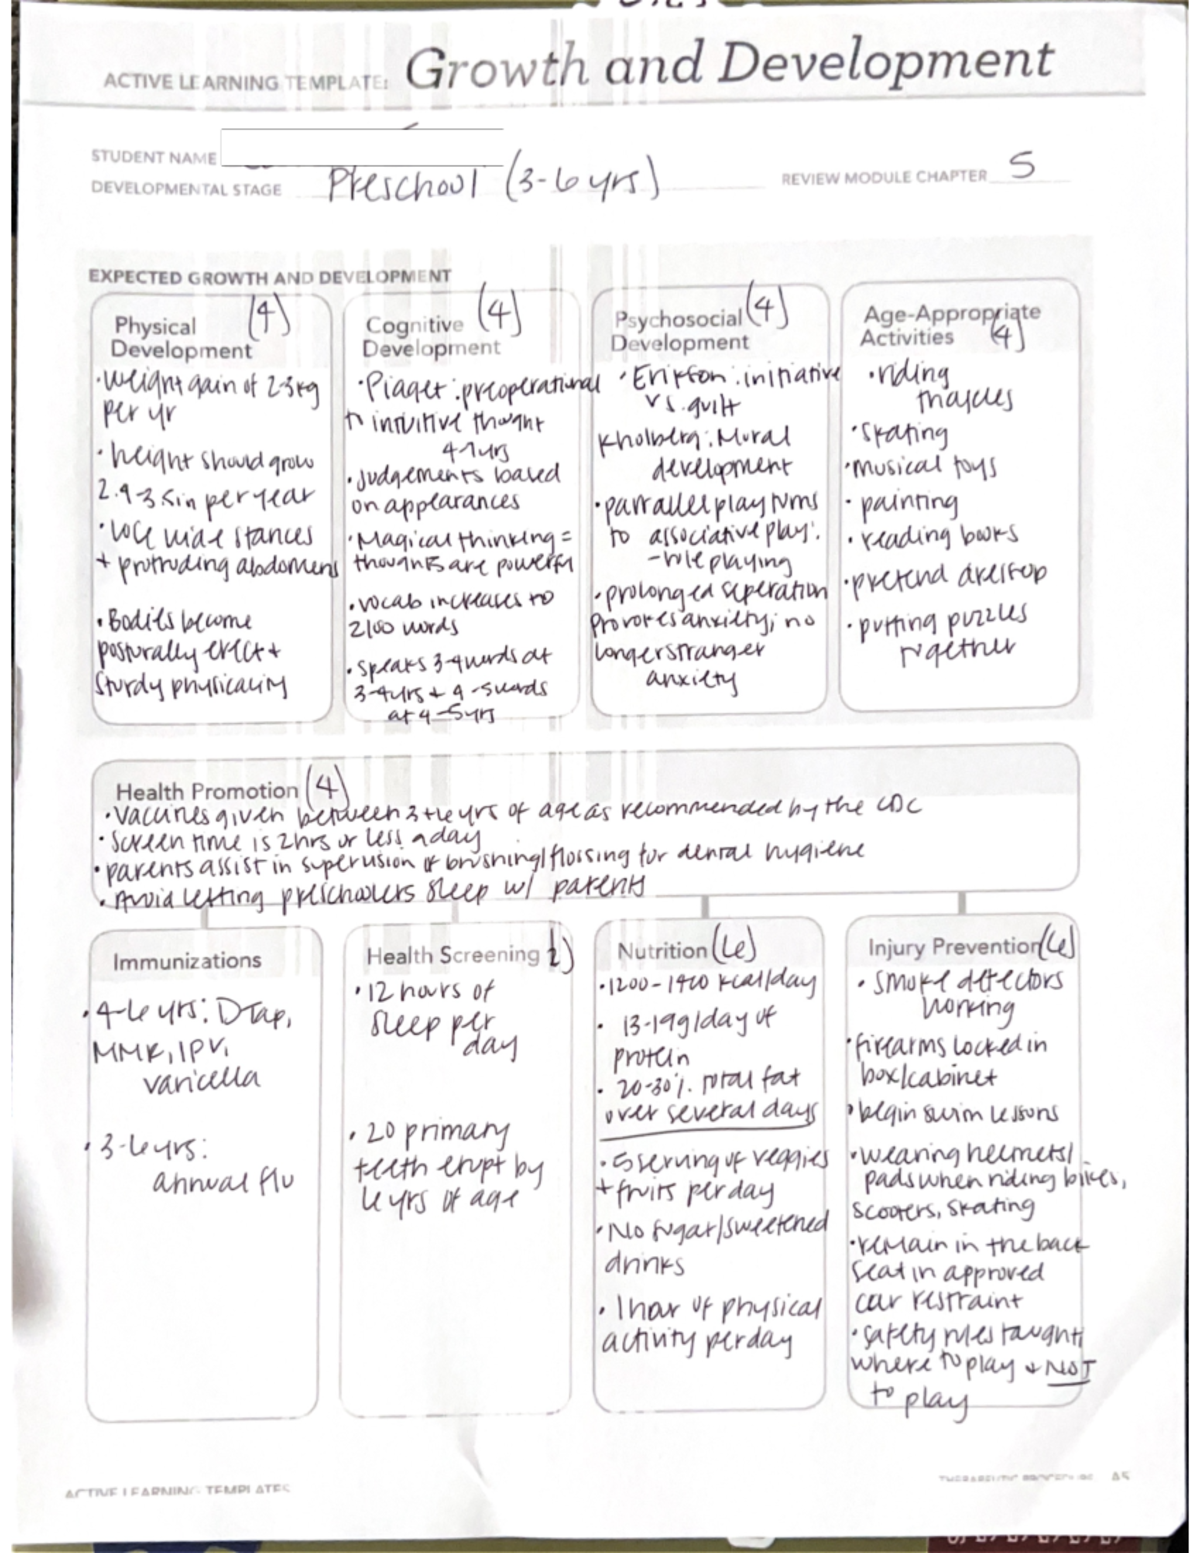 ACTIVE LEARNING TEMPLATE: Growth and Development
STUDENT NAME
DEVELOPMENTAL STAGE Preschool (3-6 yrs) REVIEW MODULE CHAPTER 5
EXPECTED GROWTH AND DEVELOPMENT
Physical (4)
Development
• Weight gain of 2-3kg
per yr
• height should grow
2.4-3.5in per year
• lose wide stances
+ protruding abdomens
• Bodies become
posturally erect +
sturdy physicality
Cognitive (4)
Development
• Piaget: preoperational
intuitive thought
4-7yrs
• Judgements based
on appearances
• Magical thinking =
thoughts are powerful
• vocab increases to
2100 words
• speaks 3-4words at
3-4yrs + 4-5words
at 4-5yrs
Psychosocial (4)
Development
• Erikson: initiative
vs. guilt
Kholberg: Moral
development
• parrallel play turns
to associative play:
- role playing
• prolonged seperation
provokes anxiety; no
longer stranger
anxiety
Age-Appropriate
Activities (4)
• riding
• skating
• musical toys
• painting
• reading books
• pretend dressup
• putting puzzles
together
Health Promotion (4)
• Vaccines given between 3+6yrs of age as recommended by the CDC
• Screen time is 2hrs or less a day
• parents assist in supervision of brushing/flossing for dental hygiene
• Avoid letting preschoolers sleep w/ parents
Immunizations
• 4-6 yrs: DTap,
MMR, IPV,
varicella
• 3-6 yrs:
annual flu
Health Screening 2)
• 12 hours of
sleep per
day
• 20 primary
teeth erupt by
6 yrs of age
Nutrition (6)
• 1200-1400 kcal/day
• 13-19g/day of
protein
• 20-30% total fat
over several days
• 5 serving of veggies
+ fruits per day
• No sugar/sweetened
drinks
• 1 hour of physical
activity per day
Injury Prevention (6)
• smoke detectors
working
• firearms locked in
box/cabinet
• begin swim lessons
• wearing helmets/
pads when riding bikes,
scooters, skating
• remain in the back
seat in approved
car restraint
• safety rules taught,
where to play + NOT
to play
ACTIVE LEARNING TEMPLATES
THERAPEUTIC PROCEDURE A5